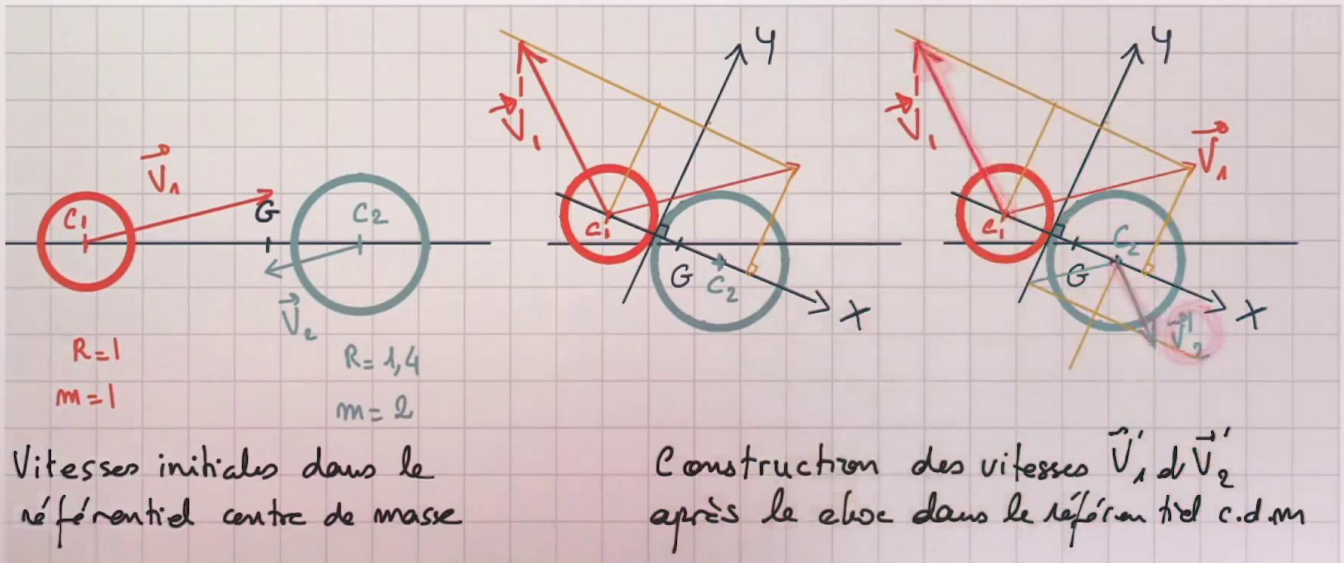 V₁
C₁
G
C₂
V₂
R=1
m=1
R=1,4
m=2
Vitesses initiales dans le
référentiel centre de masse
y
V₁
C₁
G
C₂
x
y
V₁
V₁
C₁
C₂
G
x
V'₂
Construction des vitesses V'₁ et V'₂
après le choc dans le référentiel c.d.m